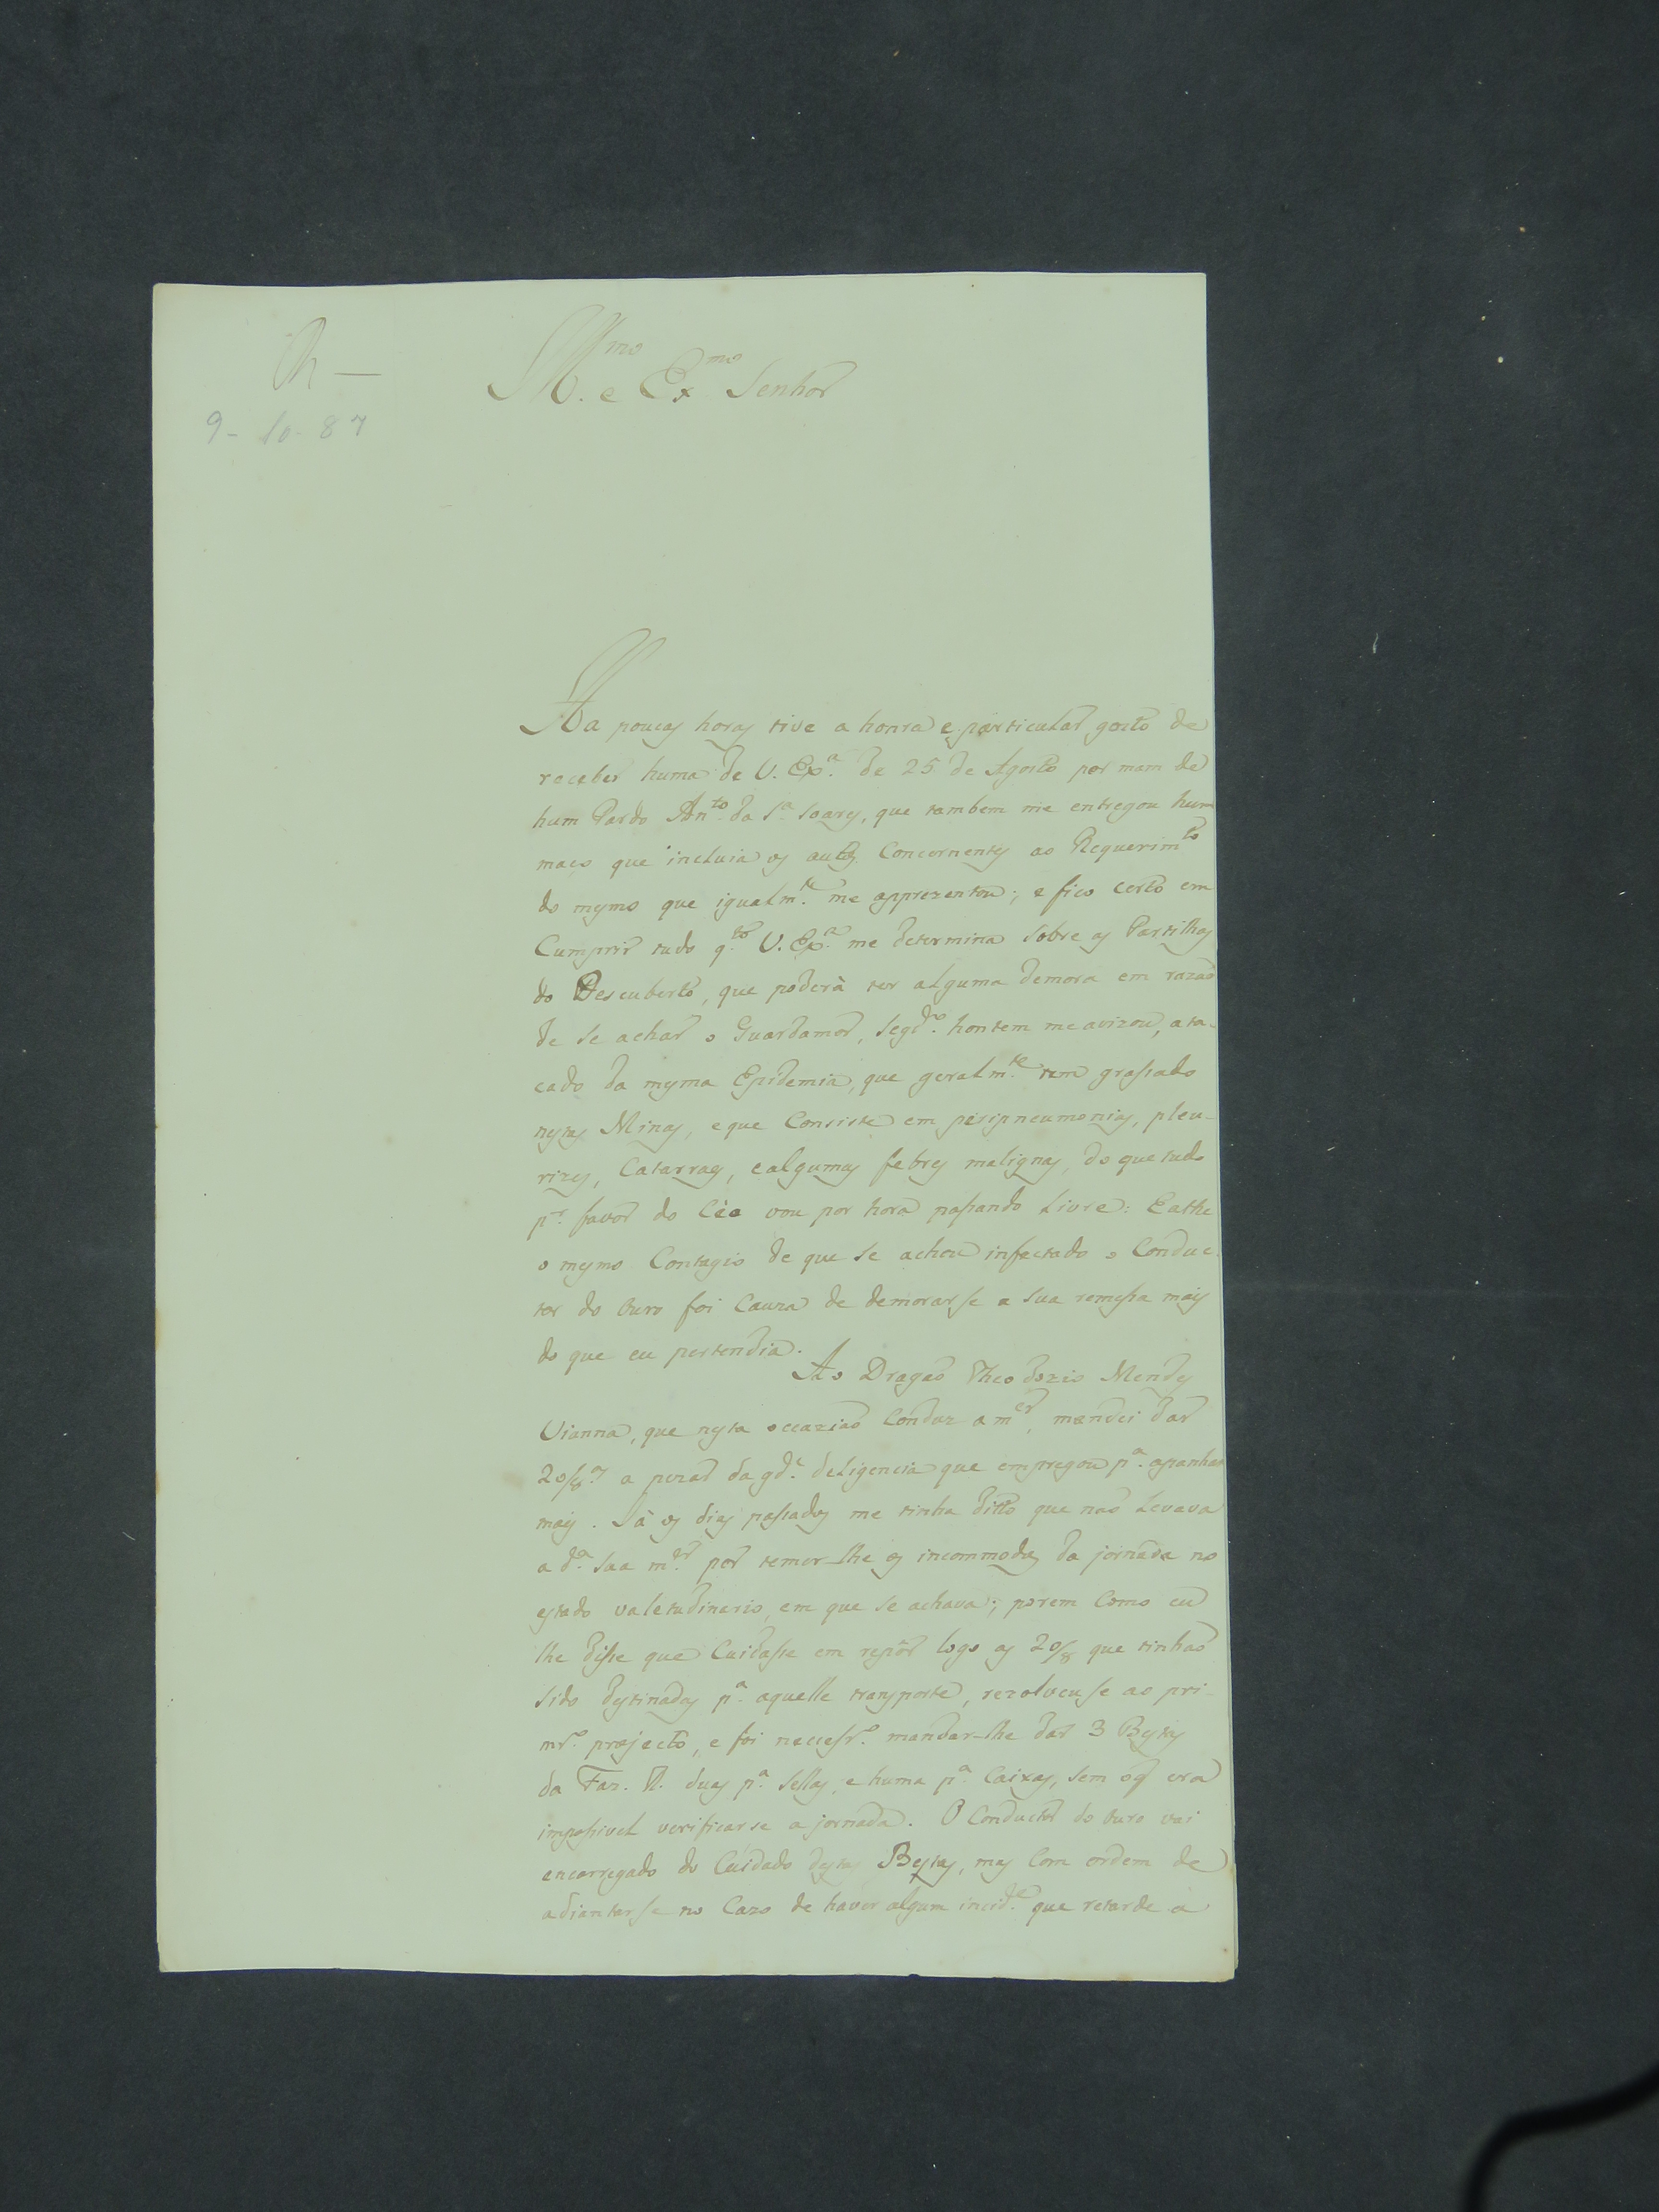 R —
9 - 10 - 87
Ill.mo e Ex.mo Senhor
Ha poucas horas tive a honra e particular gosto de
receber huma de V. Ex.a de 25 de Agosto por mam de
hum Pardo Ant.o da S.a Soares, que tambem me entregou hum
maço que incluia os autos Concernentes ao Requerim.to
do mesmo que igualm.te me apprezentou; e fico certo em
Cumprir tudo q.to V. Ex.a me determina sobre as Partilhas
do Descuberto, que poderà ter alguma demora em razaõ
de se achar o Guardamor, seg.do hontem me avizou, ata-
cado da mesma Epidemia, que geralm.te tem grassado
nestas Minas, e que Consiste em peripneumonias, pleu-
rizes, Catarraes, e algumas febres malignas, do que tudo
p.r favor do Céo vou por hora passando Livre: Eathe
o mesmo Contagio de que se achou infectado o Conduc-
tor do Ouro foi Cauza de demorarse a sua remessa mais
do que eu pertendia.
Ao Dragaõ Theodozio Mendes
Vianna, que nesta occaziaõ Conduz a m.er, mandei dar
20/8.as a pezar da gd.e deligencia que empregou p.a apanhar
mais. Já os dias passados me tinha ditto que naõ Levava
a d.a sua m.er por temer-lhe os incommodos da jornada no
estado valetudinario, em que se achava; porem Como eu
lhe disse que Cuidasse em repôr logo as 20/8 que tinhaõ
sido destinadas p.a aquelle transporte, rezolveuse ao pri-
mr.o projecto, e foi necessr.o mandar-lhe dar 3 Bestas
da Faz. R. duas p.a sellas, e huma p.a Caixas, sem o q era
impossivel verificarse a jornada. O Conductor do Ouro vai
encarregado do Cuidado destas Bestas, mas Com ordem de
adiantarse no Cazo de haver algum incid.e que retarde a